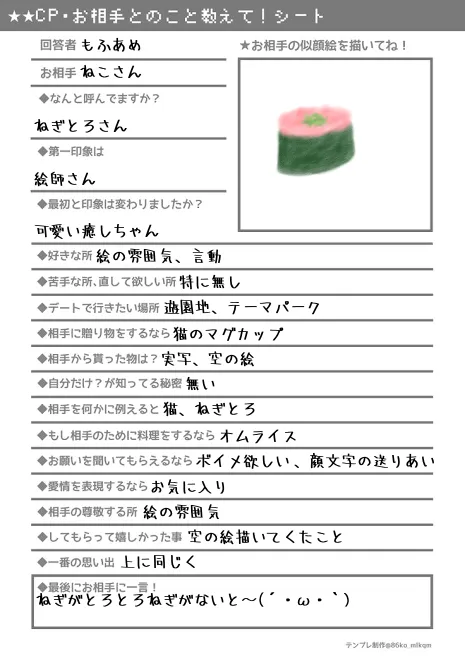 ★★CP・お相手とのこと教えて！シート
回答者 もふあめ
★お相手の似顔絵を描いてね！
お相手 ねこさん
◆なんと呼んでますか？
ねぎとろさん
◆第一印象は
絵師さん
◆最初と印象は変わりましたか？
可愛い癒しちゃん
◆好きな所 絵の雰囲気、言動
◆苦手な所、直して欲しい所 特に無し
◆デートで行きたい場所 遊園地、テーマパーク
◆相手に贈り物をするなら 猫のマグカップ
◆相手から貰った物は？ 実写、空の絵
◆自分だけ？が知ってる秘密 無い
◆相手を何かに例えると 猫、ねぎとろ
◆もし相手のために料理をするなら オムライス
◆お願いを聞いてもらえるなら ボイメ欲しい、顔文字の送りあい
◆愛情を表現するなら お気に入り
◆相手の尊敬する所 絵の雰囲気
◆してもらって嬉しかった事 空の絵描いてくたこと
◆一番の思い出 上に同じく
◆最後にお相手に一言！
ねぎがとろとろねぎがないと〜(´・ω・｀)
テンプレ制作@86ko_mlkqm